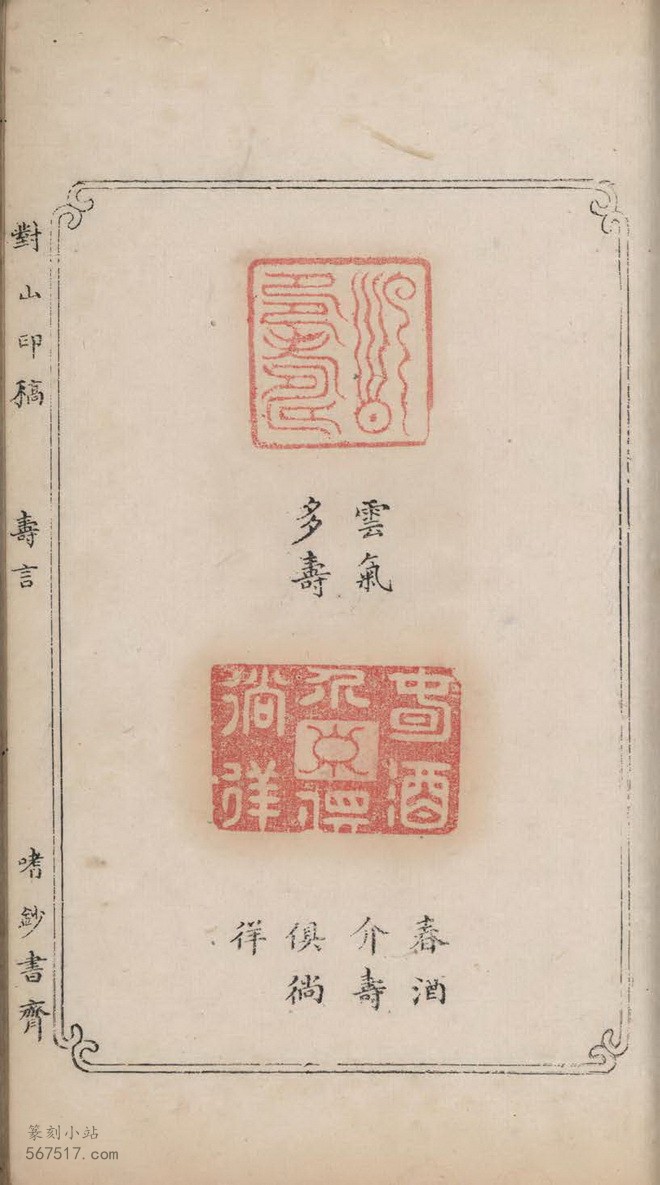 雲氣
多壽
春酒
介壽
俱徜
徉
對山印稿 壽言 嗜鈔書齊
篆刻小站
567517.com